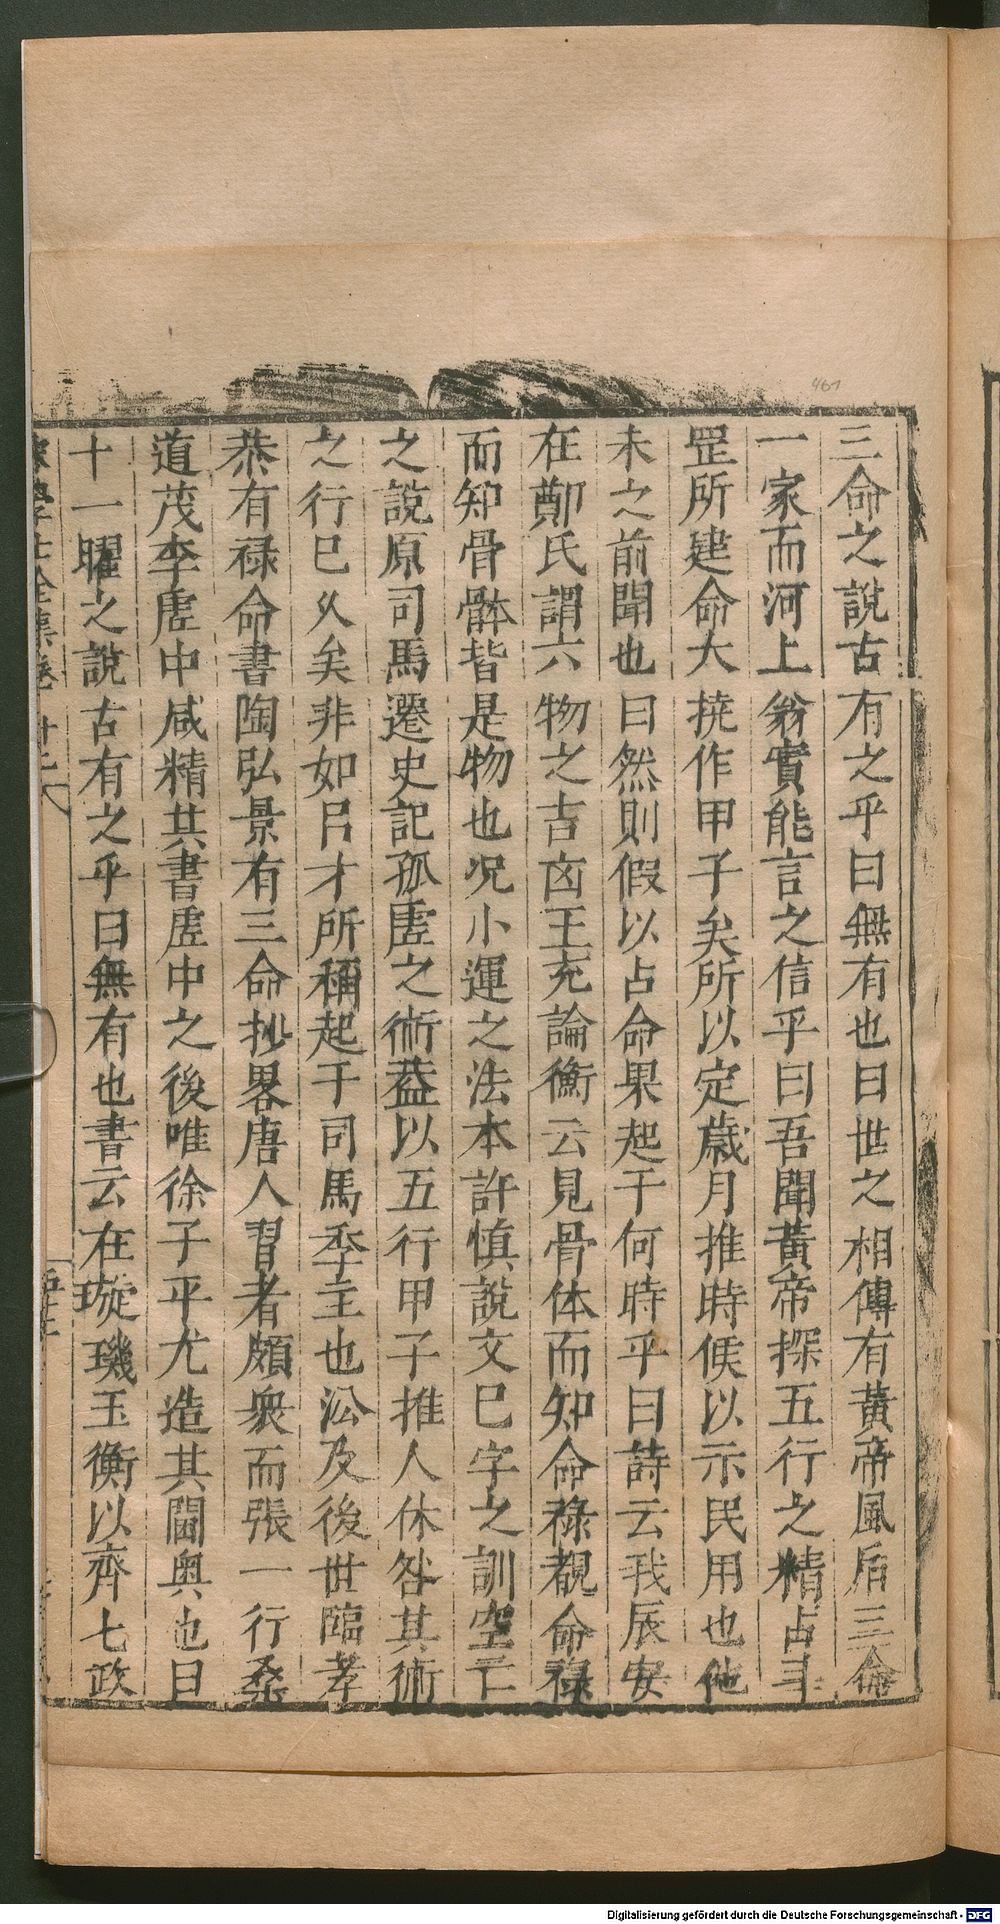 三命之說古有之乎曰無有也曰世之相傳有黃帝風后三命
一家而河上翁實能言之信乎曰吾聞黃帝探五行之精占斗
罡所建命大撓作甲子矣所以定歲月推時候以示民用也他
未之前聞也曰然則假以占命果起于何時乎曰詩云我辰安
在鄭氏謂六物之吉凶王充論衡云見骨体而知命祿覩命祿
而知骨骵皆是物也况小運之法本許慎說文巳字之訓空亡
之說原司馬遷史記孤虛之術葢以五行甲子推人休咎其術
之行已久矣非如呂才所稱起于司馬季主也㳂及後世臨孝
恭有禄命書陶弘景有三命抄畧唐人習者頗衆而張一行桑
道茂李虛中咸精其書虛中之後唯徐子平尤造其閫奧也曰
十一曜之說古有之乎曰無有也書云在璇璣玉衡以齊七政
學士全集卷
461
Digitalisierung gefördert durch die Deutsche Forschungsgemeinschaft - DFG